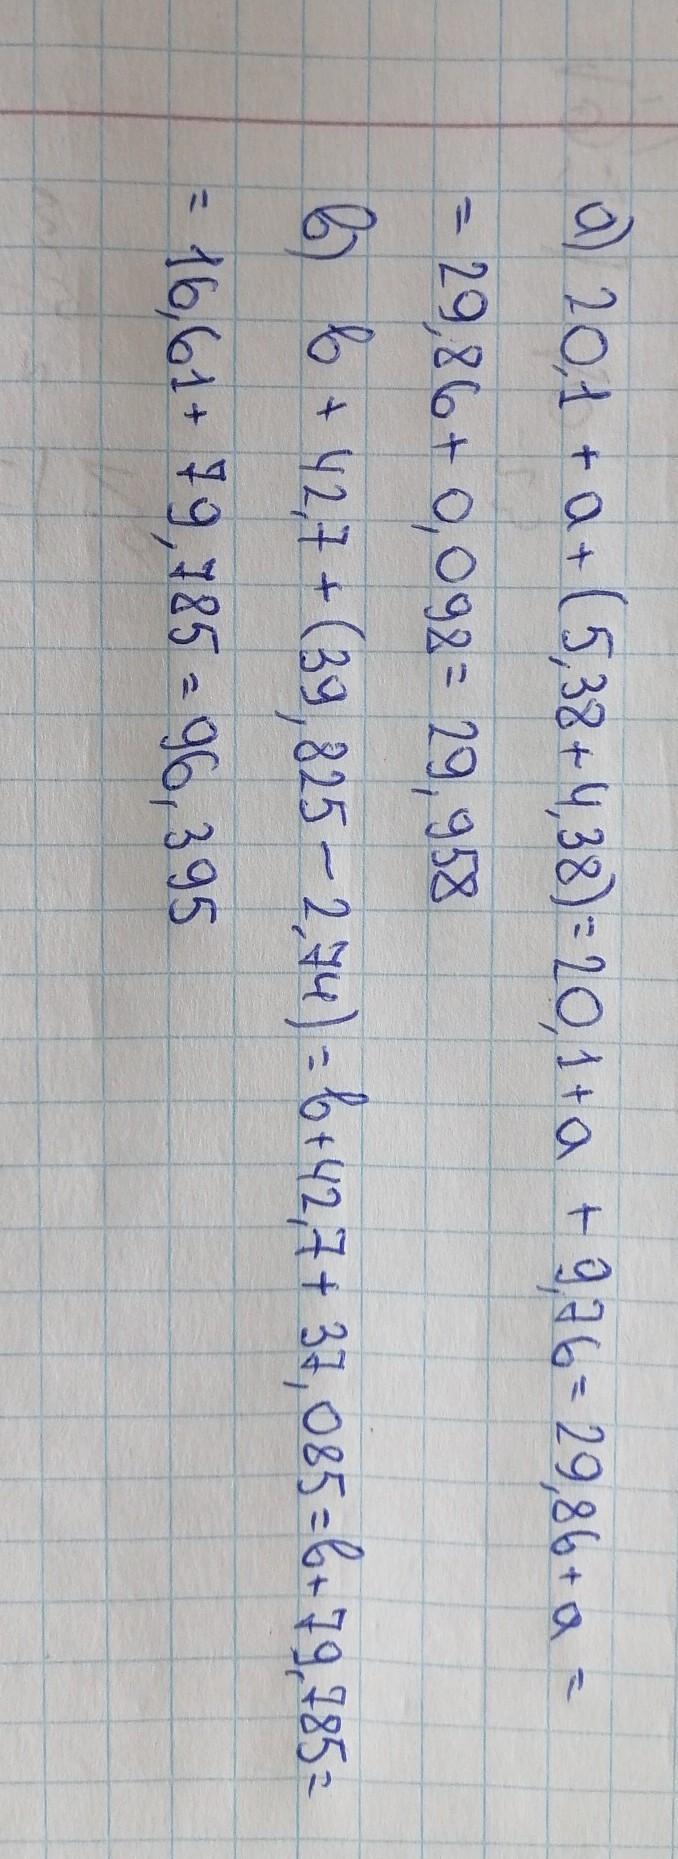 a) 20,1 + a + (5,38 + 4,38) = 20,1 + a + 9,76 = 29,86 + a =
= 29,86 + 0,098 = 29,958
b) b + 42,7 + (39,825 - 2,74) = b + 42,7 + 37,085 = b + 79,785 =
= 16,61 + 79,785 = 96,395